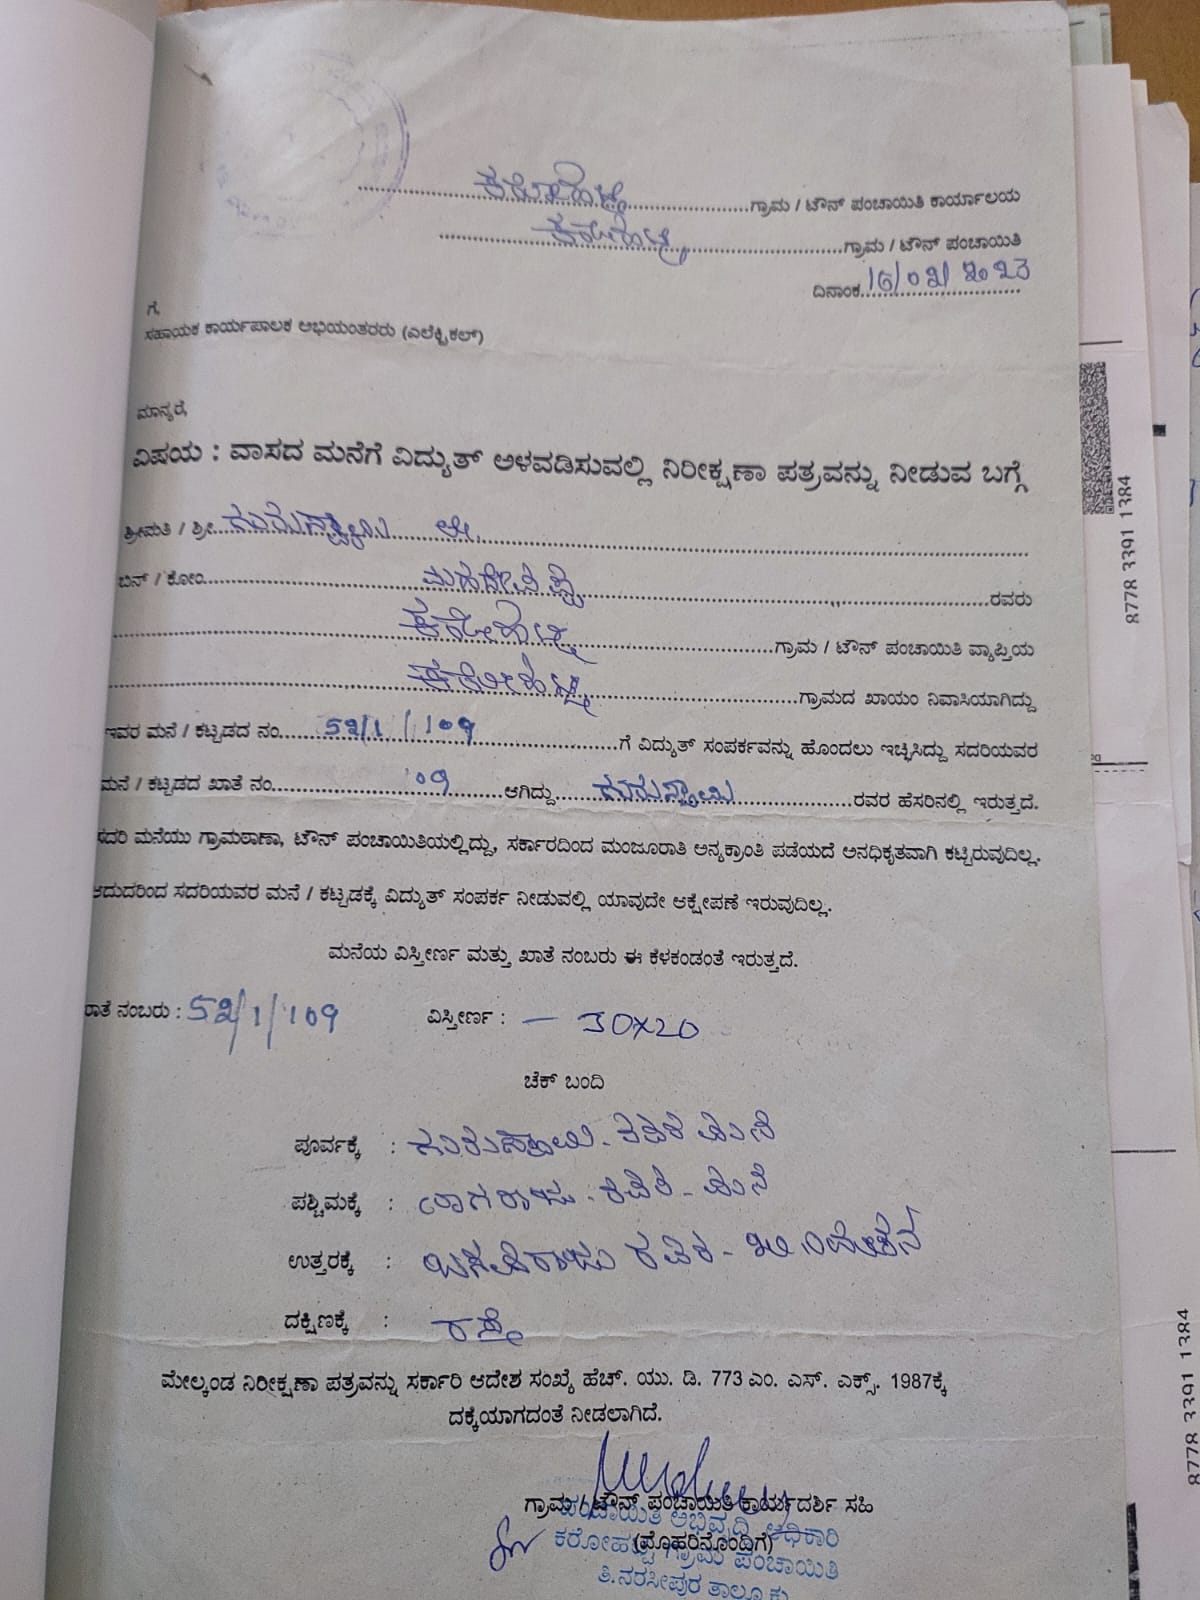 ಕರೋಹಟ್ಟಿ ಗ್ರಾಮ / ಟೌನ್ ಪಂಚಾಯಿತಿ ಕಾರ್ಯಾಲಯ
ಕರೋಹಟ್ಟಿ ಗ್ರಾಮ / ಟೌನ್ ಪಂಚಾಯಿತಿ
ದಿನಾಂಕ 16/02/2023
ಗೆ,
ಸಹಾಯಕ ಕಾರ್ಯಪಾಲಕ ಅಭಿಯಂತರರು (ಎಲೆಕ್ಟ್ರಿಕಲ್)
ಮಾನ್ಯರೆ,
ವಿಷಯ : ವಾಸದ ಮನೆಗೆ ವಿದ್ಯುತ್ ಅಳವಡಿಸುವಲ್ಲಿ ನಿರೀಕ್ಷಣಾ ಪತ್ರವನ್ನು ನೀಡುವ ಬಗ್ಗೆ
ಶ್ರೀಮತಿ / ಶ್ರೀ. ಗುರುಸ್ವಾಮಿ
ಬಿನ್ / ಕೋಂ ಮಹದೇವಪ್ಪ ರವರು
ಕರೋಹಟ್ಟಿ ಗ್ರಾಮ / ಟೌನ್ ಪಂಚಾಯಿತಿ ವ್ಯಾಪ್ತಿಯ
ಕರೋಹಟ್ಟಿ ಗ್ರಾಮದ ಖಾಯಂ ನಿವಾಸಿಯಾಗಿದ್ದು
ಇವರ ಮನೆ / ಕಟ್ಟಡದ ನಂ. 52/1/109 ಗೆ ವಿದ್ಯುತ್ ಸಂಪರ್ಕವನ್ನು ಹೊಂದಲು ಇಚ್ಛಿಸಿದ್ದು ಸದರಿಯವರ
ಮನೆ / ಕಟ್ಟಡದ ಖಾತೆ ನಂ. 109 ಆಗಿದ್ದು ಗುರುಸ್ವಾಮಿ ರವರ ಹೆಸರಿನಲ್ಲಿ ಇರುತ್ತದೆ.
ಸದರಿ ಮನೆಯು ಗ್ರಾಮಠಾಣಾ, ಟೌನ್ ಪಂಚಾಯಿತಿಯಲ್ಲಿದ್ದು, ಸರ್ಕಾರದಿಂದ ಮಂಜೂರಾತಿ ಅನ್ಯಕ್ರಾಂತಿ ಪಡೆಯದೆ ಅನಧಿಕೃತವಾಗಿ ಕಟ್ಟಿರುವುದಿಲ್ಲ.
ಆದುದರಿಂದ ಸದರಿಯವರ ಮನೆ / ಕಟ್ಟಡಕ್ಕೆ ವಿದ್ಯುತ್ ಸಂಪರ್ಕ ನೀಡುವಲ್ಲಿ ಯಾವುದೇ ಆಕ್ಷೇಪಣೆ ಇರುವುದಿಲ್ಲ.
ಮನೆಯ ವಿಸ್ತೀರ್ಣ ಮತ್ತು ಖಾತೆ ನಂಬರು ಈ ಕೆಳಕಂಡಂತೆ ಇರುತ್ತದೆ.
ಖಾತೆ ನಂಬರು : 52/1/109 ವಿಸ್ತೀರ್ಣ : — 30X20
ಚೆಕ್ ಬಂದಿ
ಪೂರ್ವಕ್ಕೆ : ಗುರುಸ್ವಾಮಿ - ರವರ ಮನೆ
ಪಶ್ಚಿಮಕ್ಕೆ : ನಾಗರಾಜು - ರವರ - ಮನೆ
ಉತ್ತರಕ್ಕೆ : ಬಸವರಾಜು ರವರ -
ದಕ್ಷಿಣಕ್ಕೆ : ರಸ್ತೆ
ಮೇಲ್ಕಂಡ ನಿರೀಕ್ಷಣಾ ಪತ್ರವನ್ನು ಸರ್ಕಾರಿ ಆದೇಶ ಸಂಖ್ಯೆ ಹೆಚ್. ಯು. ಡಿ. 773 ಎಂ. ಎಸ್. ಎಕ್ಸ್. 1987ಕ್ಕೆ
ದಕ್ಕೆಯಾಗದಂತೆ ನೀಡಲಾಗಿದೆ.
ಗ್ರಾಮ / ಟೌನ್ ಪಂಚಾಯಿತಿ ಕಾರ್ಯದರ್ಶಿ ಸಹಿ
(ಮೊಹರಿನೊಂದಿಗೆ)
ಪಂಚಾಯಿತಿ ಅಭಿವೃದ್ಧಿ ಅಧಿಕಾರಿ
ಕರೋಹಟ್ಟಿ ಗ್ರಾಮ ಪಂಚಾಯಿತಿ
ತಿ.ನರಸೀಪುರ ತಾಲ್ಲೂಕು
8778 3391 1384
8778 3391 1384